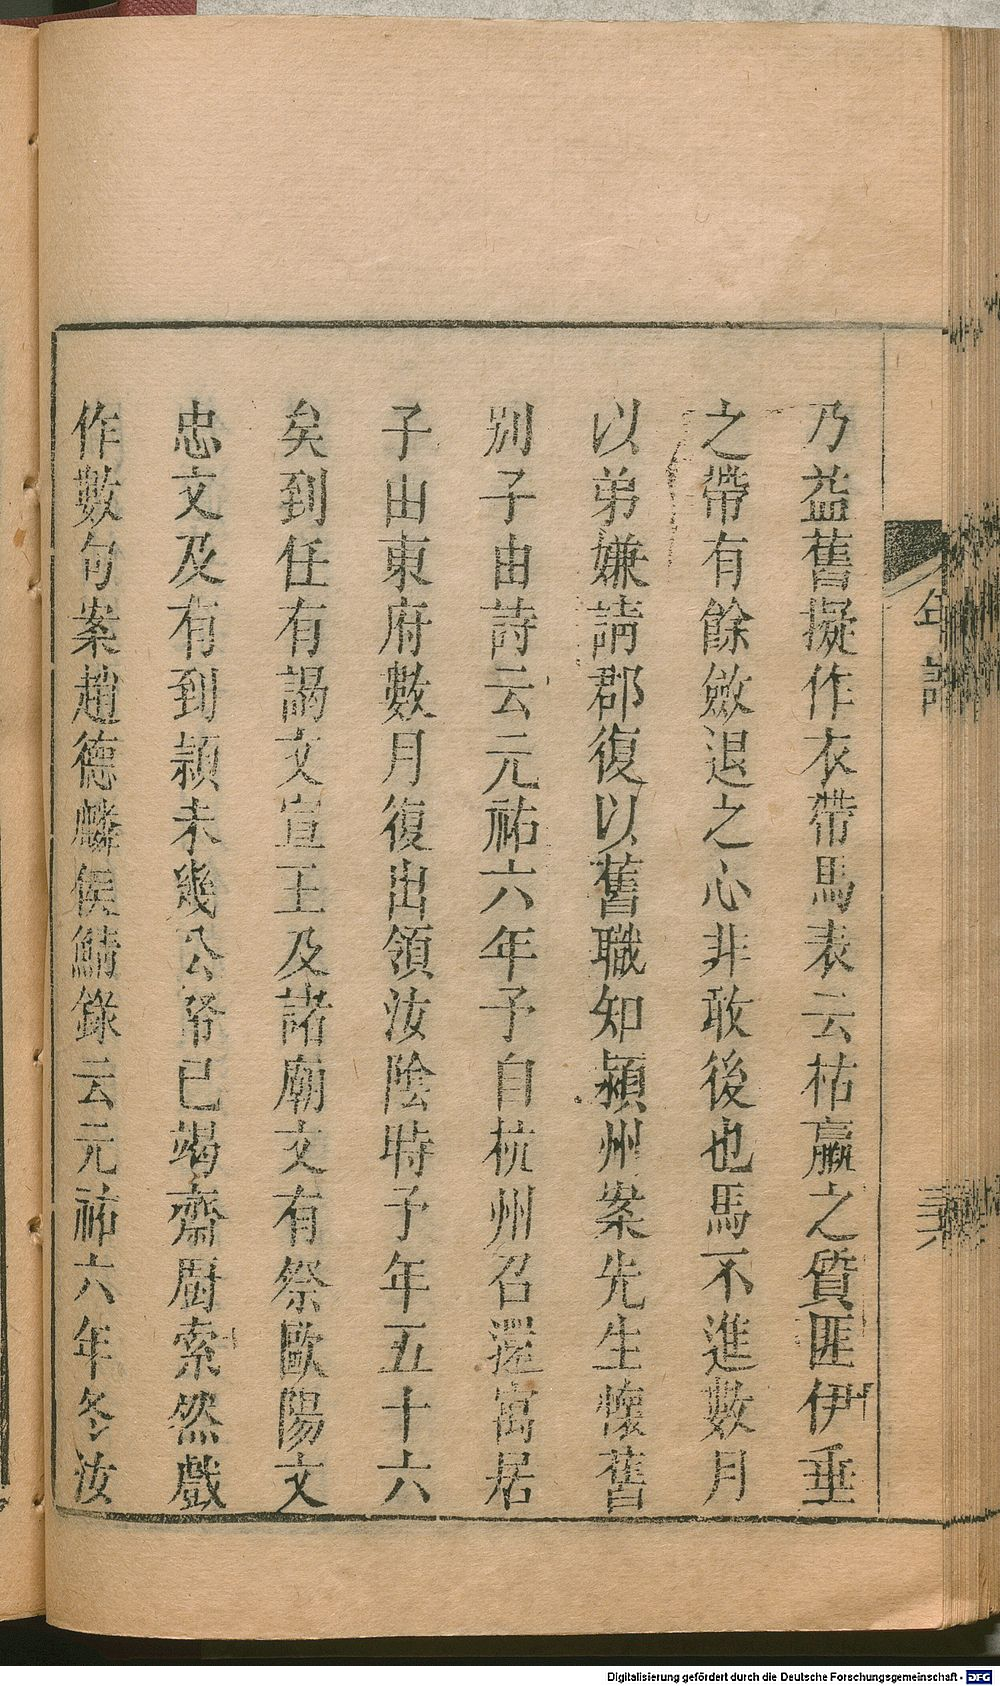 乃益舊擬作衣帶馬表云枯羸之質匪伊垂
之帶有餘斂退之心非敢後也馬不進數月
以弟嫌請郡復以舊職知潁州案先生懷舊
別子由詩云元祐六年予自杭州召還寓居
子由東府數月復出領汝陰時予年五十六
矣到任有謁文宣王及諸廟文有祭歐陽文
忠文及有到潁未幾公帑已竭齋厨索然戲
作數句案趙德麟侯鯖錄云元祐六年冬汝
年譜
Digitalisierung gefördert durch die Deutsche Forschungsgemeinschaft - DFG